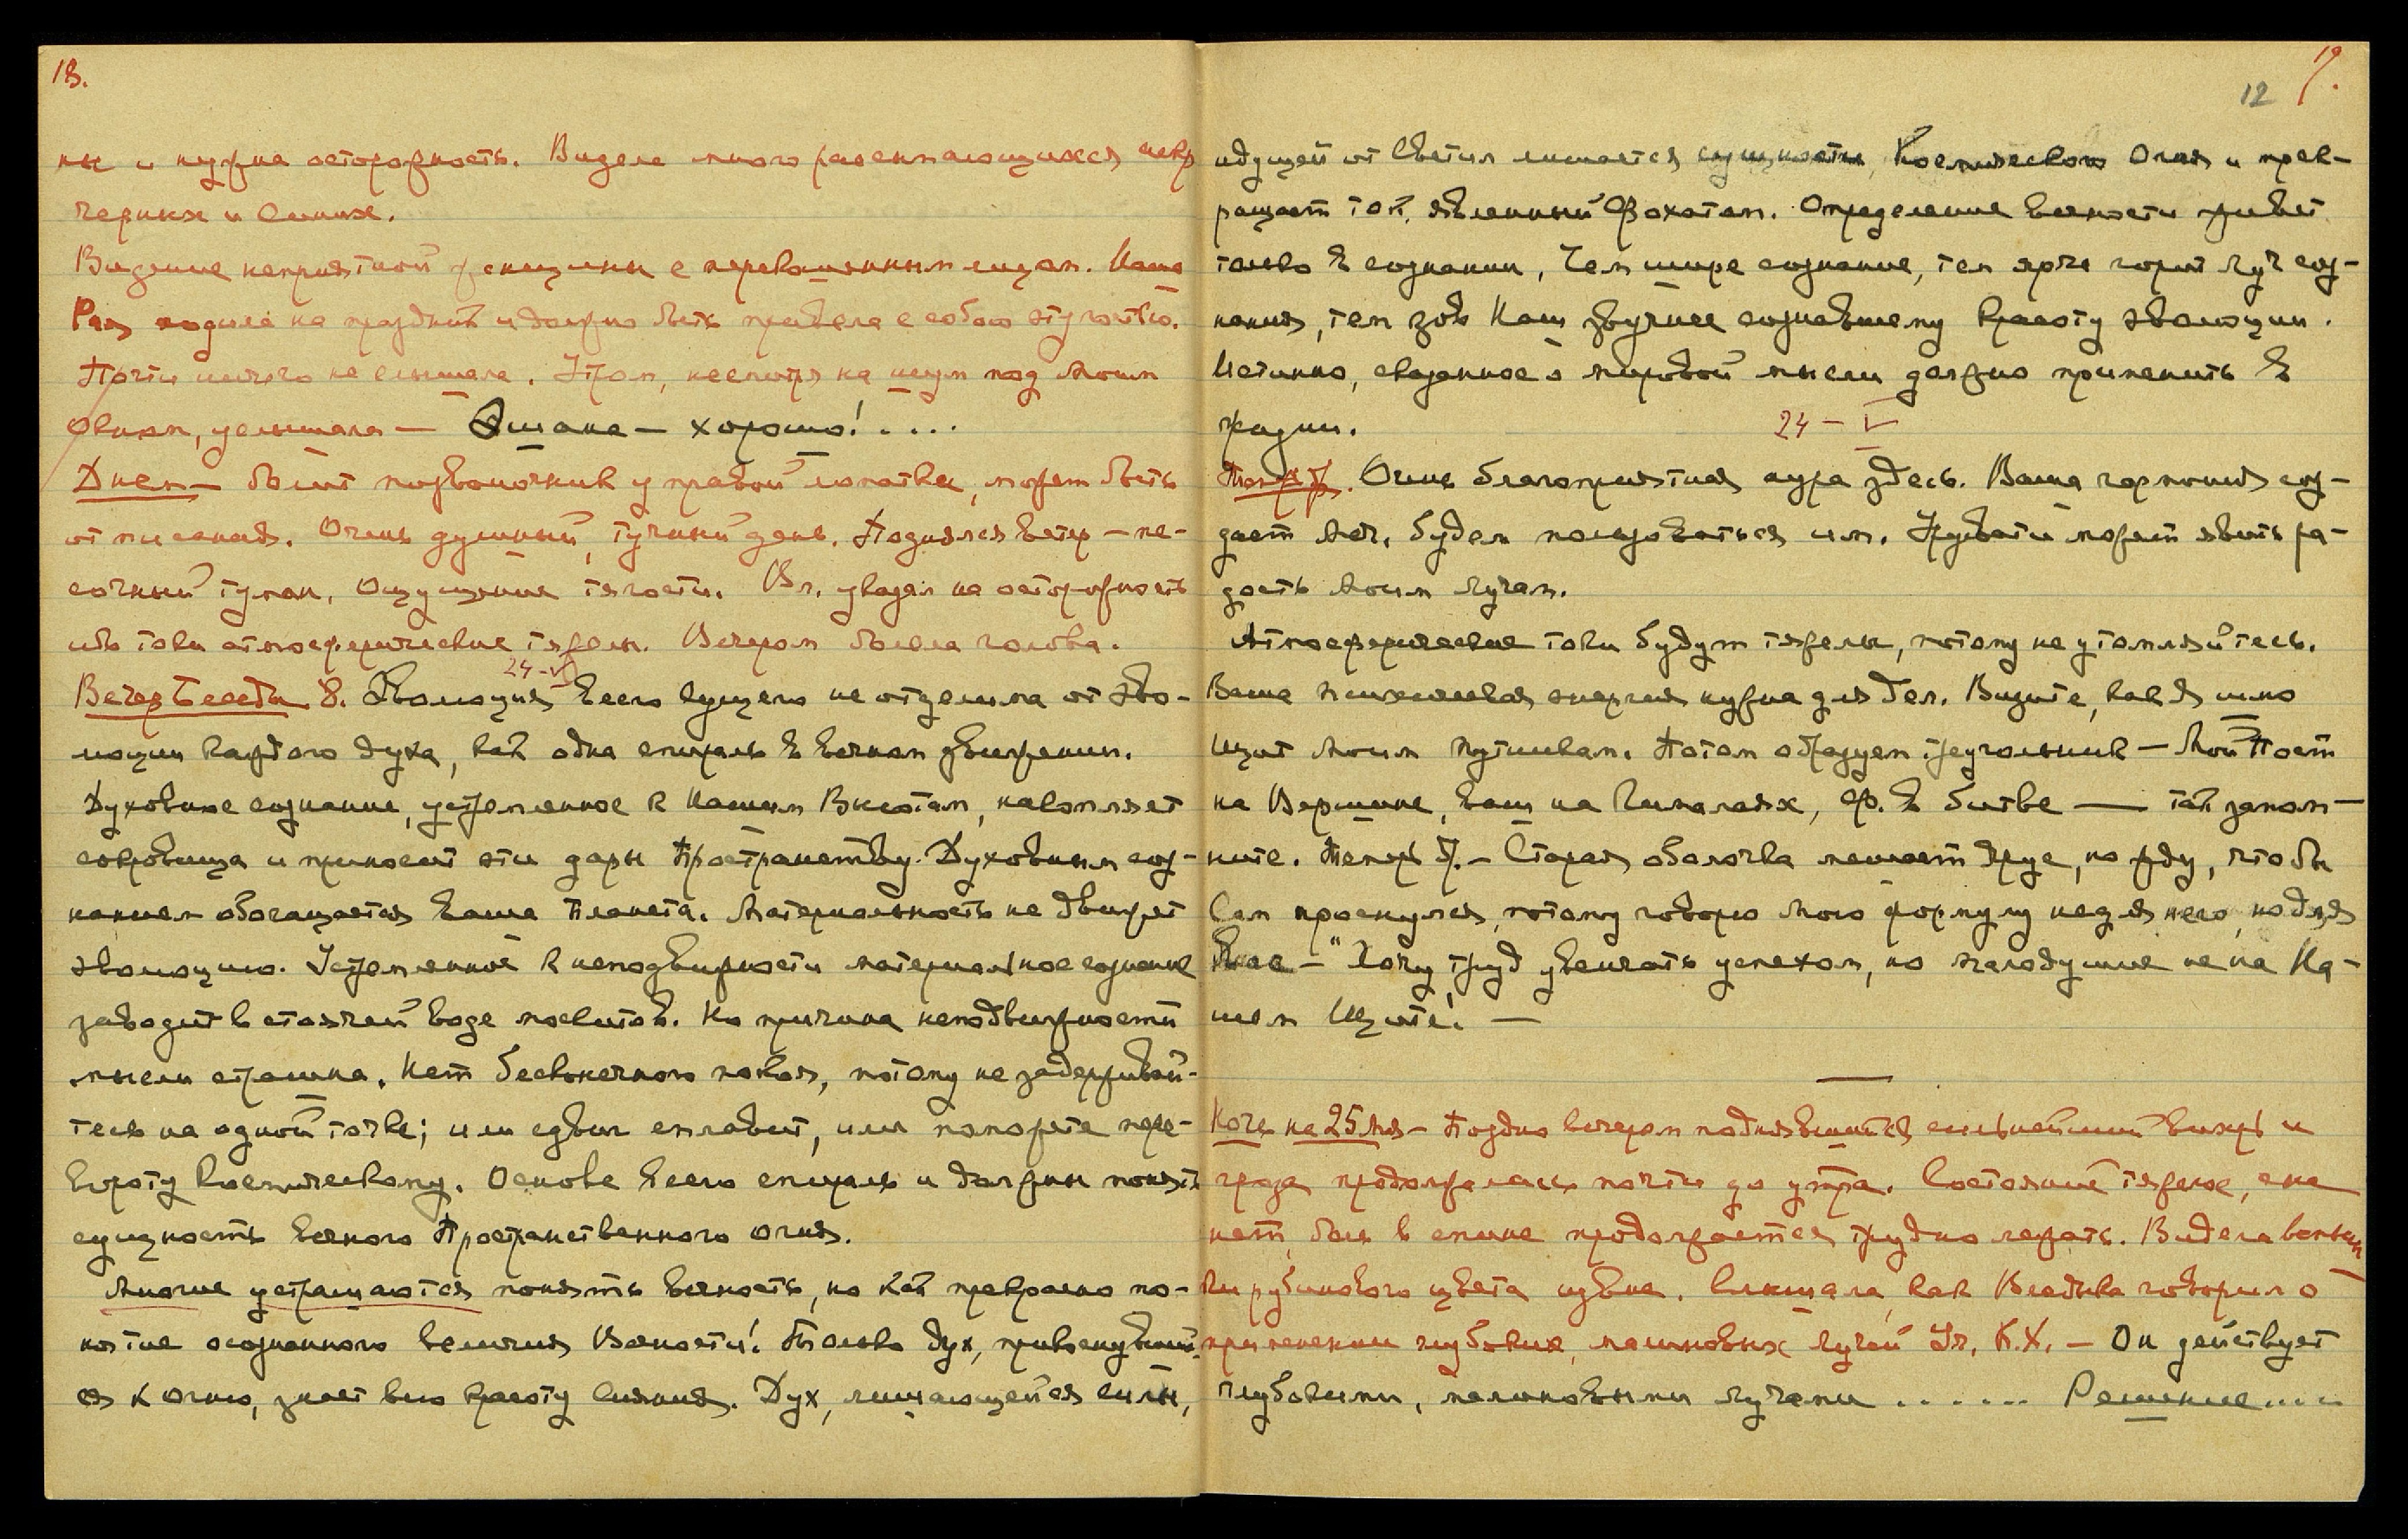 18.
ны и нужна осторожность. Видела много рассыпающихся искр
черных и синих.
Видение неприятной женщины с перекошенным лицом. Наша
Рая ходила на праздник и должно быть привела с собою эту гостью.
Почти ничего не слышала. Утром, несмотря на шум под моим
окном, услышала — хорошо!....
Днем — болит позвоночник у правой лопатки, может быть
от писания. Очень душный, тучный день. Поднялся ветер — пе-
сочный туман, ощущение тягости. Вл. указал на осторожность
ибо токи атмосферические тяжелы. Вечером болела голова.
24-V
Вечер Беседы 8. Эволюция всего сущего не отделима от эво-
люции каждого духа, как одна спираль в вечном движении.
Духовное сознание, устремленное к Нашим Высотам, накопляет
сокровища и приносит эти дары Пространству. Духовным соз-
нанием обогащается ваша планета. Материальность не движет
эволюцию. Устремленное к неподвижности материальное сознание
заводит в стоячей воде москитов. Но причина неподвижности
мысли страшна. Нет бесконечного покоя, потому не задерживай-
тесь на одной точке; или сдвиг сплавит, или поможете пере-
вороту Космическому. Основа всего спираль и должны понять
сущность вечного Пространственного огня.
Многие устрашаются понять вечность, но как прекрасно по-
нятие осознанного величия Вечности! Только дух, прикоснувший-
ся к Огню, знает всю красоту сияния. Дух, лишающийся силы,
19.
12
идущей от Светил лишается сущности Космического Огня и прек-
ращает ток, явленный Фохатом. Определение вечности живет
только в сознании, Чем шире сознание, тем ярче горит луч соз-
нания, тем зов Наш звучнее сознавшему красоту эволюции.
Истинно, сказанное о мировой мысли должно применить в
жизни.
24 - V
Очень благоприятная аура здесь. Ваша гармония соз-
дает будем пользоваться им. Урусвати может явить ра-
дость моим лучам.
Атмосферические токи будут тяжелы, потому не утомляйтесь.
Ваша психическая энергия нужна для дел. Видите, как Я шлю
щит моим путникам. Потом образуем треугольник — Мой Пост
на Вершине, ваш на Гималаях, Ф. в битве — так запом-
ните. Теперь — Старая оболочка мешает другу, но жду, чтобы
Сам проснулся, потому говорю мою формулу не для него, но для
вас — "Хочу труд увенчать успехом, но малодушие не на На-
шем Щите! —
Ночь на 25 Мая — Поздно вечером поднявшийся сильнейший вихрь и
гроза продолжались почти до утра. Состояние тяжелое, сна
нет, боль в спине продолжается трудно лежать. Видела вспыш-
ки рубинового цвета извне. Слышала, как Владыка говорил о
применении глубоких, малиновых лучей Уч. К.Х. — Он действует
глубокими, малиновыми лучами ...... Решение...